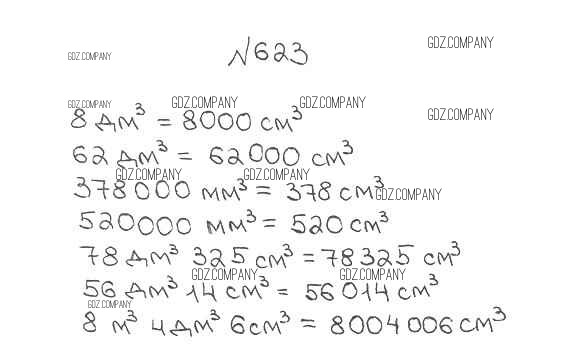 N623
GDZ.COMPANY
GDZ.COMPANY
GDZ.COMPANY GDZ.COMPANY GDZ.COMPANY
GDZ.COMPANY
8 дм³ = 8000 см³
62 дм³ = 62000 см³
GDZ.COMPANY GDZ.COMPANY
378000 мм³ = 378 см³
GDZ.COMPANY
520000 мм³ = 520 см³
78 дм³ 325 см³ = 78325 см³
GDZ.COMPANY GDZ.COMPANY
56 дм³ 14 см³ = 56014 см³
GDZ.COMPANY
8 м³ 4 дм³ 6 см³ = 8004006 см³